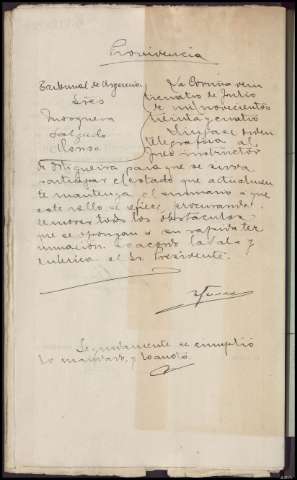 Providencia
Tribunal de Urgencia
Sres
Salgado
Alonso
La Coruña vein
ticuatro de Julio
de mil novecientos
treinta y cuatro
Dirijase orden
telegrafica al
Juez instructor
de Ortigueira para que se sirva
participar el estado que actualmen
te mantenga el sumario a que
este rollo se refiere, procurando
remover todos los obstáculos
que se opongan a su rapida ter
minación. Lo acordó la Sala y
rubrica el Sr. Presidente.
Seguidamente se cumplió
lo mandado, y